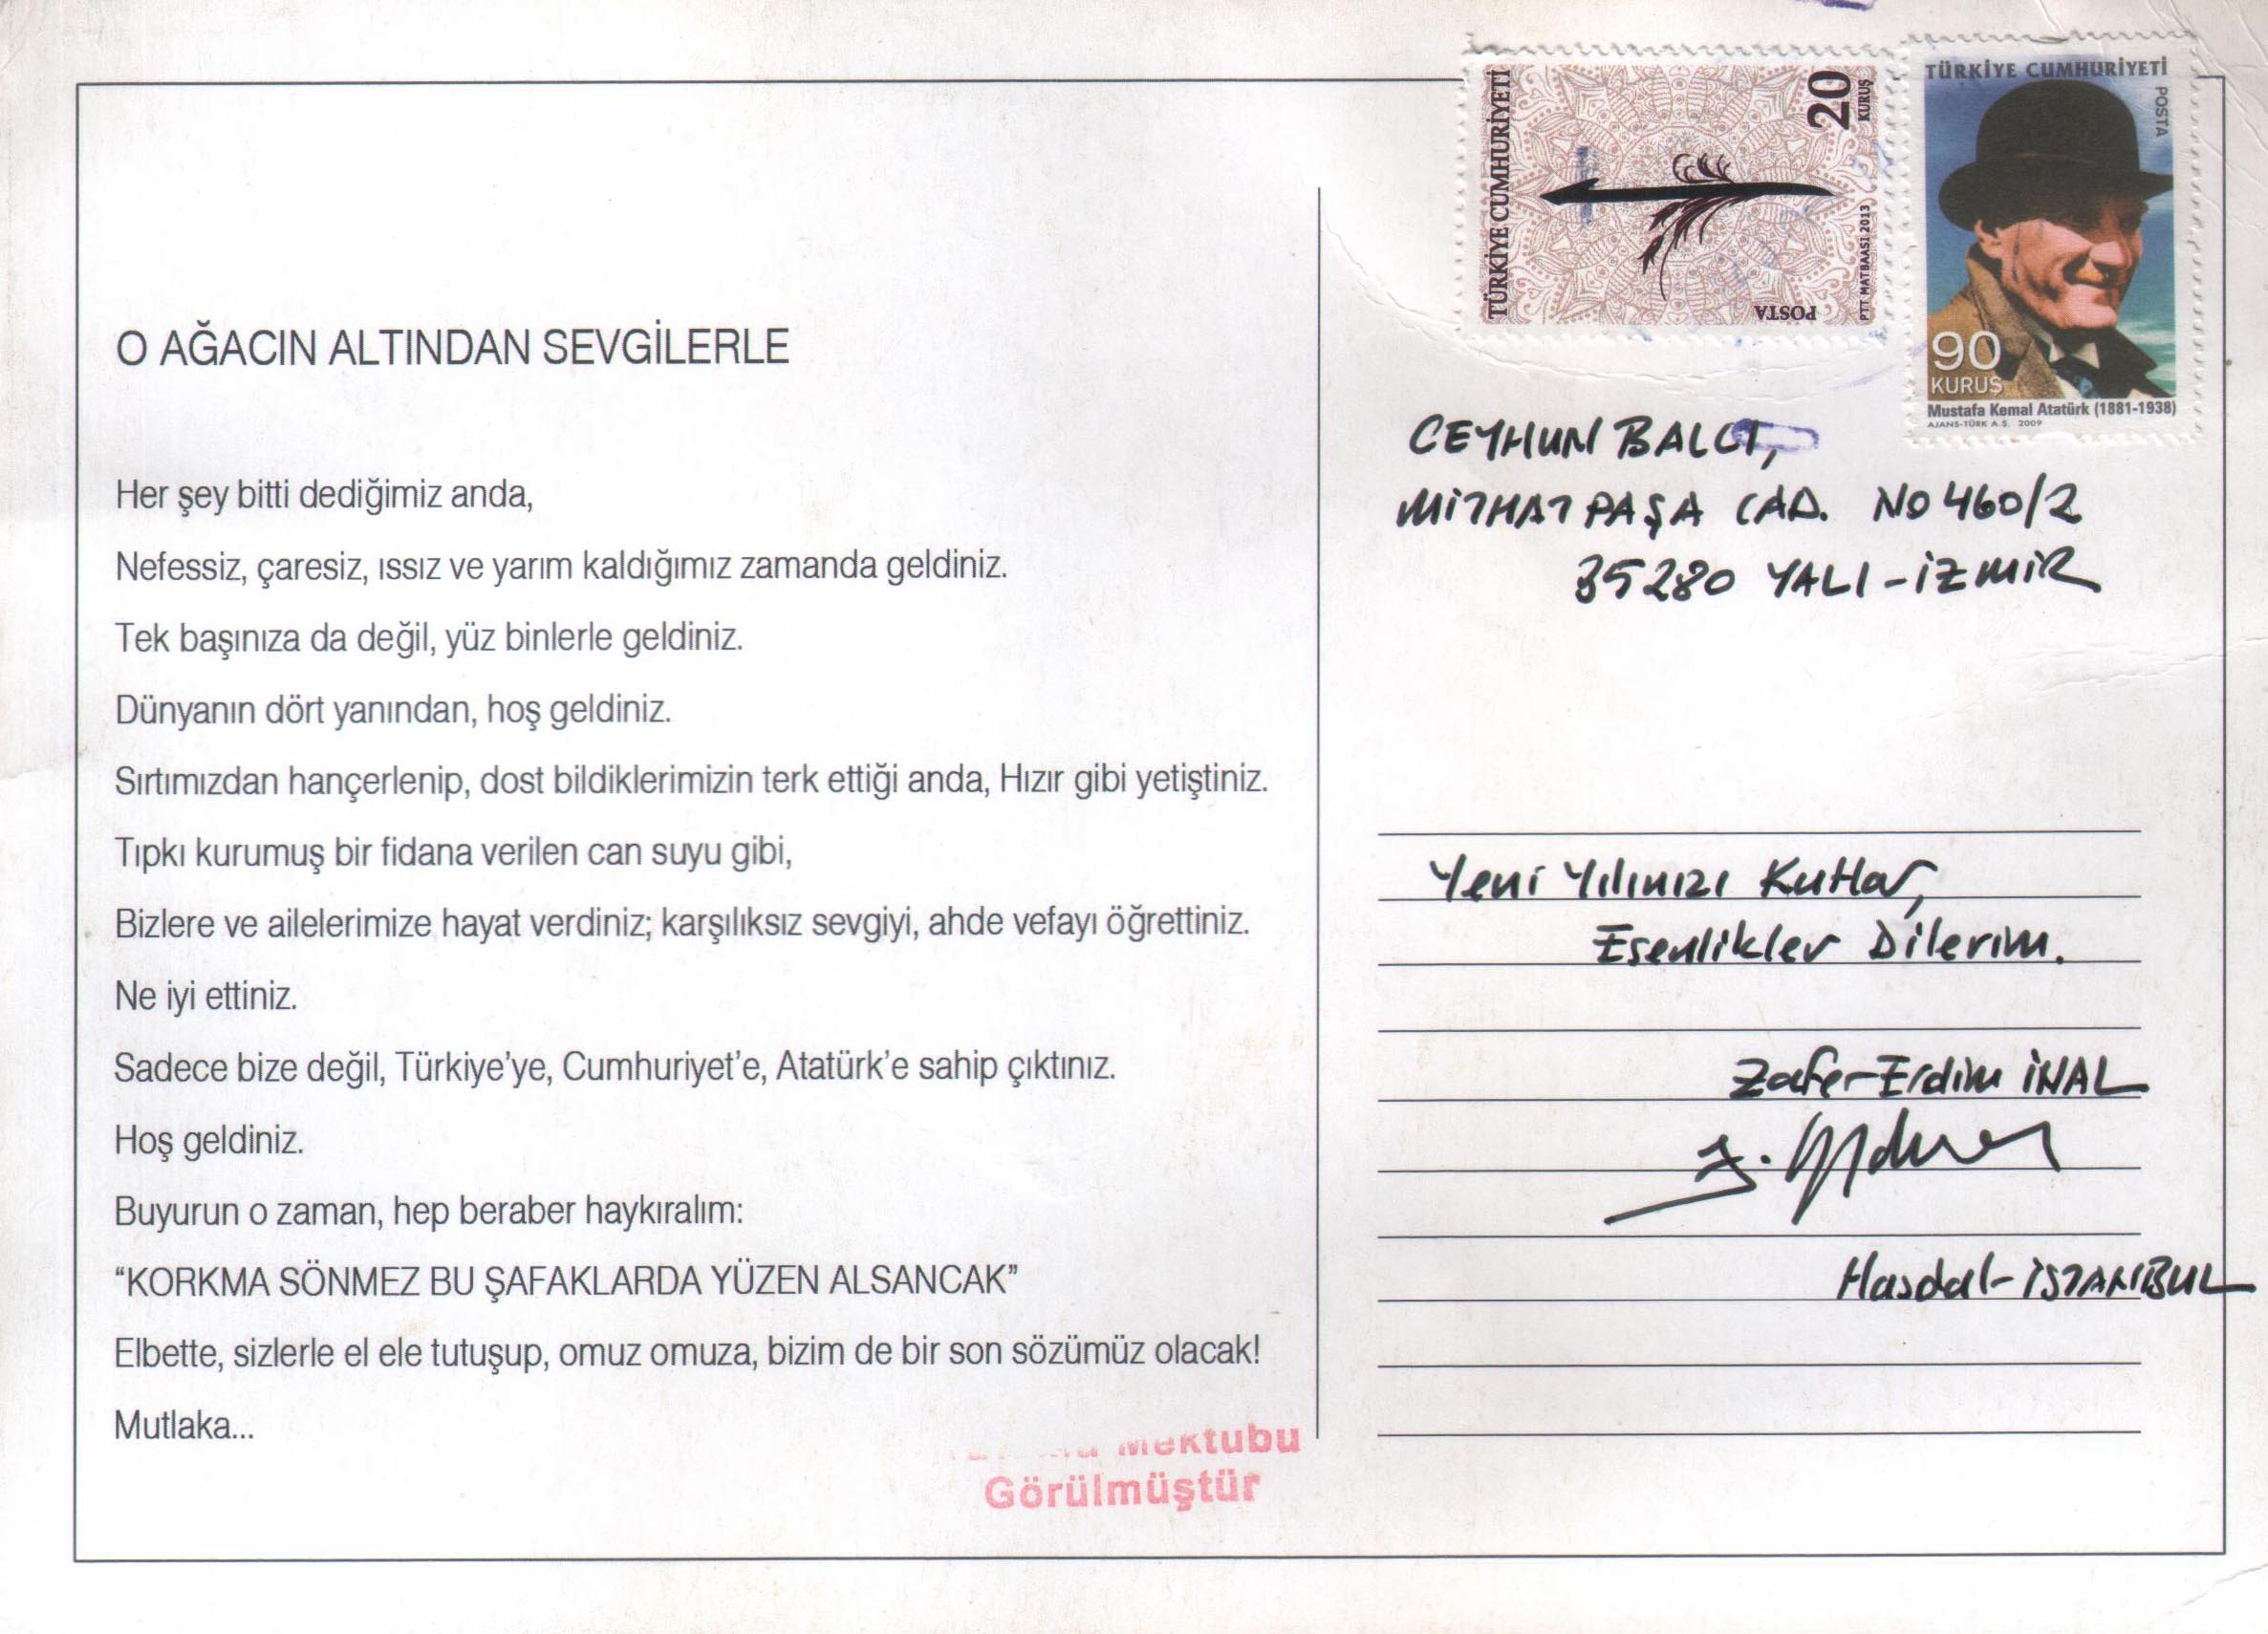 O AĞACIN ALTINDAN SEVGİLERLE
Her şey bitti dediğimiz anda,
Nefessiz, çaresiz, ıssız ve yarım kaldığımız zamanda geldiniz.
Tek başınıza da değil, yüz binlerle geldiniz.
Dünyanın dört yanından, hoş geldiniz.
Sırtımızdan hançerlenip, dost bildiklerimizin terk ettiği anda, Hızır gibi yetiştiniz.
Tıpkı kurumuş bir fidana verilen can suyu gibi,
Bizlere ve ailelerimize hayat verdiniz; karşılıksız sevgiyi, ahde vefayı öğrettiniz.
Ne iyi ettiniz.
Sadece bize değil, Türkiye'ye, Cumhuriyet'e, Atatürk'e sahip çıktınız.
Hoş geldiniz.
Buyurun o zaman, hep beraber haykıralım:
“KORKMA SÖNMEZ BU ŞAFAKLARDA YÜZEN ALSANCAK”
Elbette, sizlerle el ele tutuşup, omuz omuza, bizim de bir son sözümüz olacak!
Mutlaka...
Mektubu
Görülmüştür
TÜRKİYE CUMHURİYETİ
20
KURUŞ
POSTA
PTT MATBAASI 2013
TÜRKİYE CUMHURİYETİ
POSTA
90
KURUŞ
Mustafa Kemal Atatürk (1881-1938)
AJANS-TÜRK A.Ş. 2009
CEYHUN BALCI,
MİTHATPAŞA CAD. NO 460/2
35280 YALI-İZMİR
Yeni Yılınızı Kutlar,
Esenlikler Dilerim.
Zafer-Erdim İNAL
Hasdal-İSTANBUL